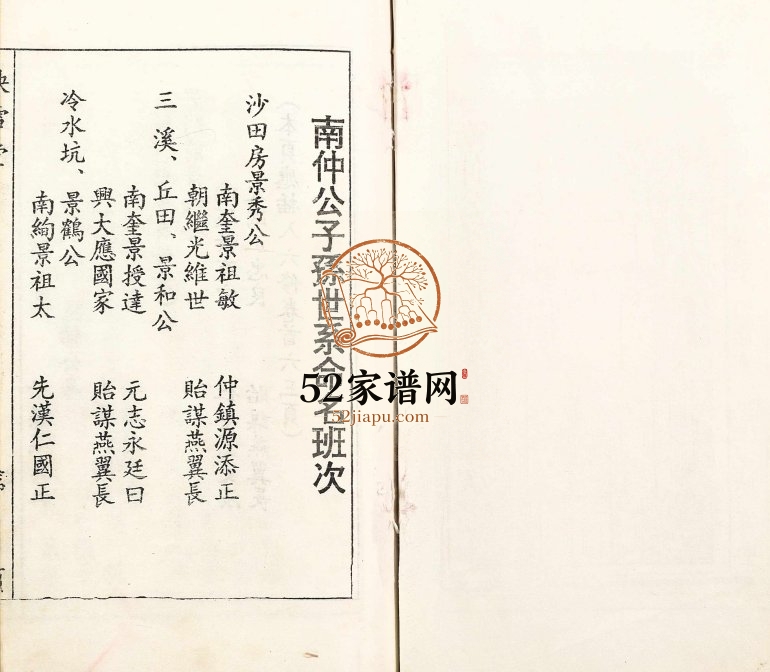 南仲公子孫世系命名班次
沙田房景秀公
南奎景祖敏 仲鎮源添正
朝繼光維世 貽謀燕翼長
三 溪、丘田、景和公
南奎景授達 元志永廷曰
興大應國家 貽謀燕翼長
冷水坑、景鶴公
南絢景祖太 先漢仁國正
52家谱网
52jiapu.com